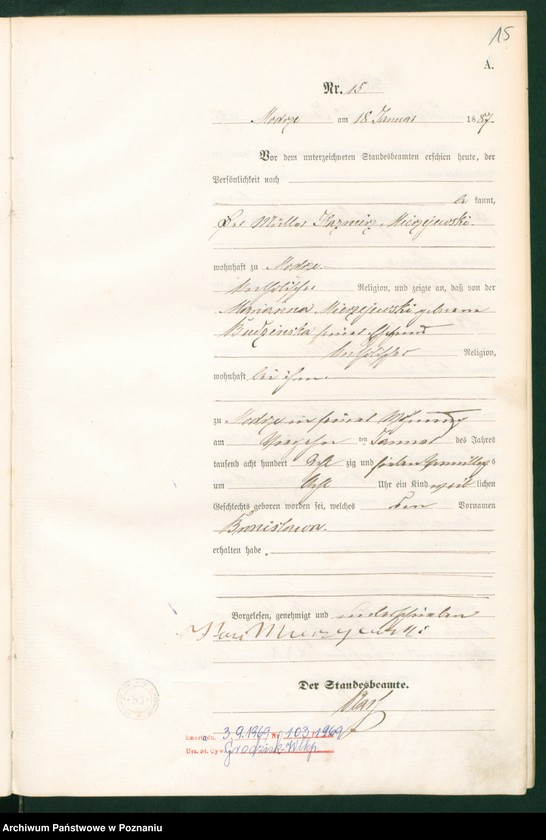 15
A.
Nr. 15
Modrze am 18 Januar 1887.
Vor dem unterzeichneten Standesbeamten erschien heute, der
Persönlichkeit nach
be kannt,
der Müller Kazmirz Mierzejewski
wohnhaft zu Modrze
katholischer Religion, und zeigte an, daß von der
Marianna Mierzejewski geborene
Budzinska seiner Ehefrau
katholischer Religion,
wohnhaft bei ihm
zu Modrze in seiner Wohnung
am Vierzehn ten Januar des Jahres
tausend acht hundert acht zig und sieben Vormittags
um acht Uhr ein Kind weib lichen
Geschlechts geboren worden sei, welches den Vornamen
Bronislawa
erhalten habe.
Vorgelesen, genehmigt und unterschrieben
Der Standesbeamte.
3.9.1969 Nr 103/1969
Grodzisk-Wlkp.
Archiwum Państwowe w Poznaniu